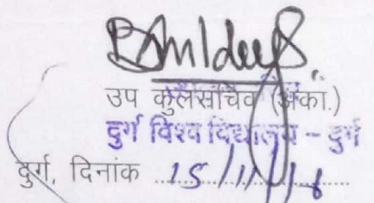 उप कुलसचिव (अका.)
दुर्ग विश्वविद्यालय - दुर्ग
दुर्ग, दिनांक 15/11/16